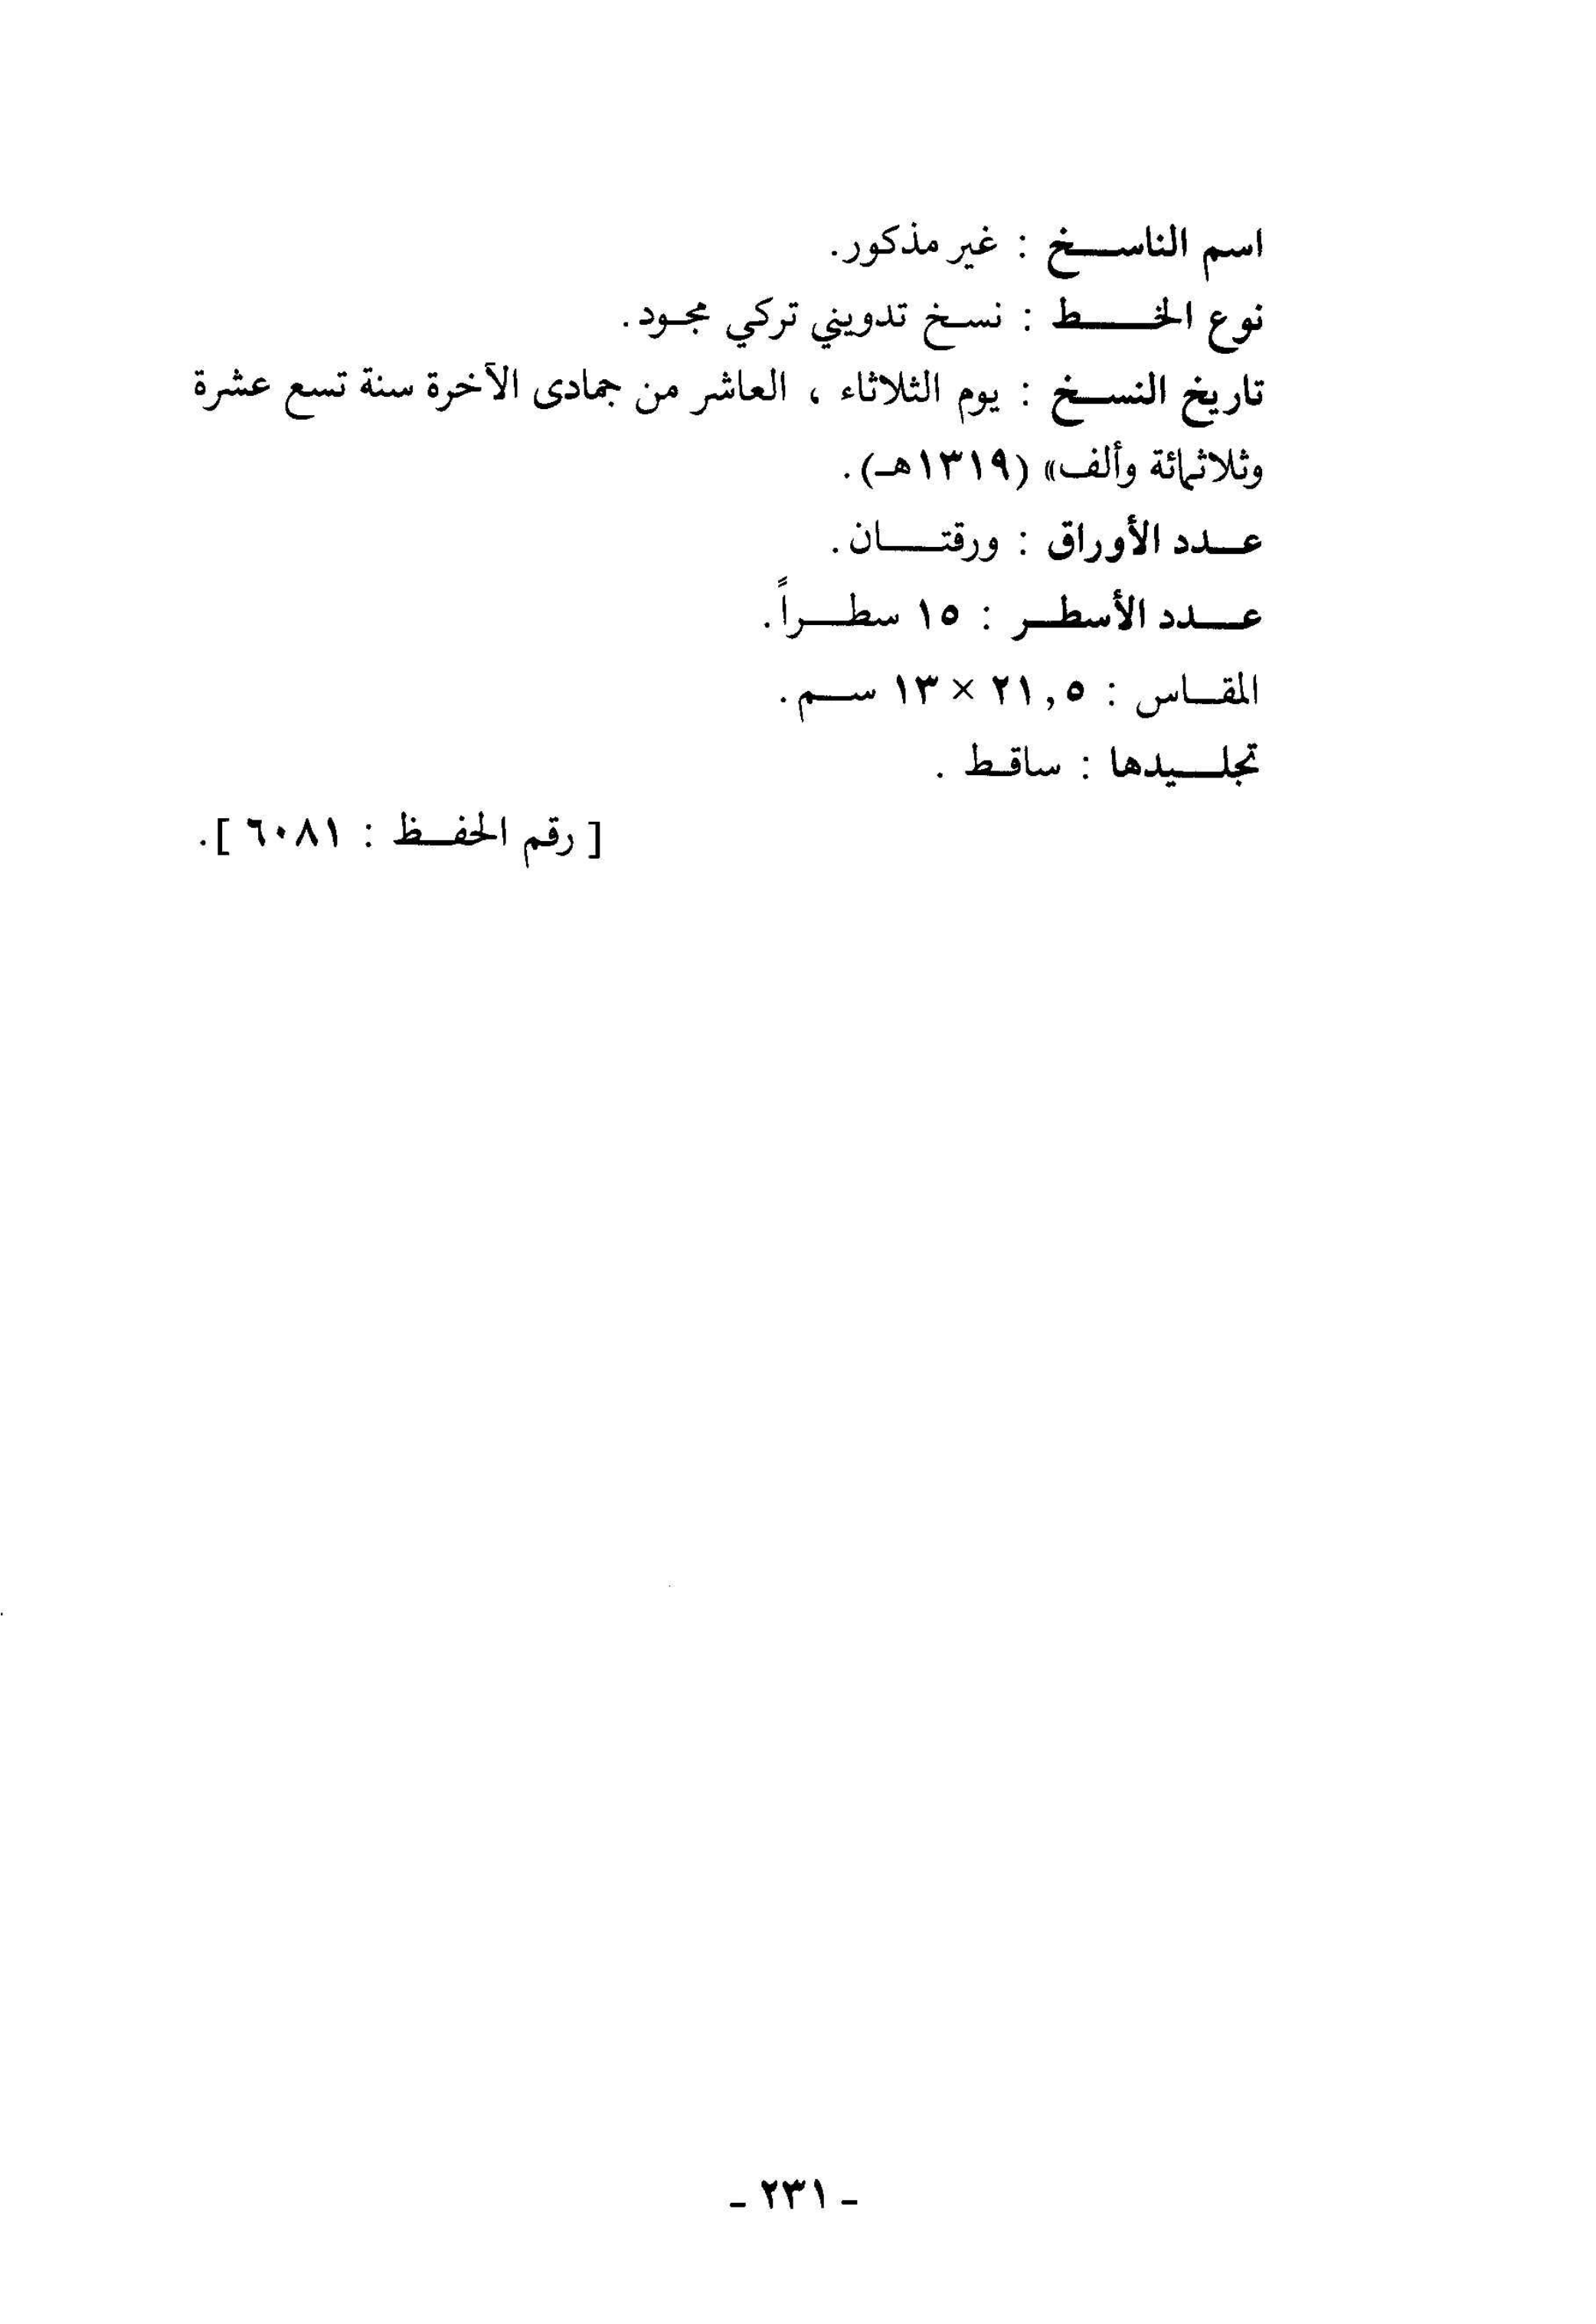 اسم الناسخ : غير مذكور.
نوع الخط : نسخ تدويني تركي مجود.
تاريخ النسخ : يوم الثلاثاء ، العاشر من جمادى الآخرة سنة تسع عشرة
وثلاثمائة وألف» (١٣١٩هـ).
عدد الأوراق : ورقتان.
عدد الأسطر : ١٥ سطراً.
المقاس : ٢١,٥ × ١٣ سم.
تجليدها : ساقط .
[ رقم الحفظ : ٦٠٨١ ].
- ٢٣١ -